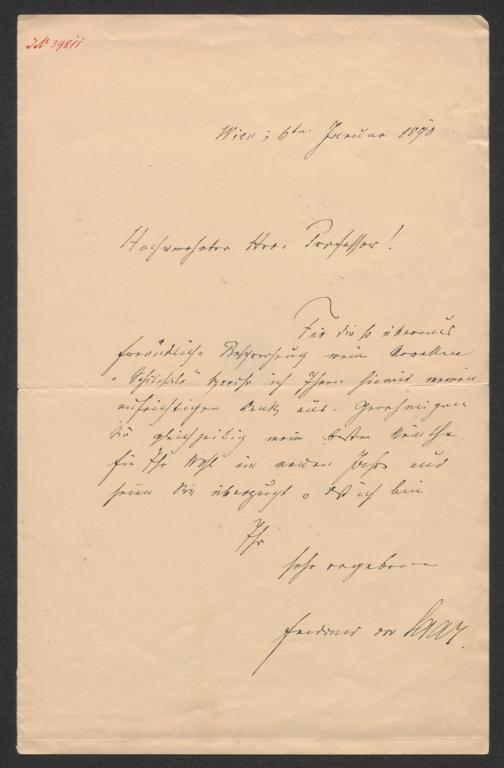 IN 39811
Wien, 6ten Januar 1890
Hochverehrter Herr Professor!
Für die so überaus
freundliche Besprechung meiner Novellen
„Schicksale" spreche ich Ihnen hiemit meinen
aufrichtigen Dank aus. Genehmigen
Sie gleichzeitig meine besten Wünsche
für Ihr Wohl im neuen Jahre und
seien Sie überzeugt, daß ich bin
Ihr
sehr ergebener
Ferdinand von Saar.